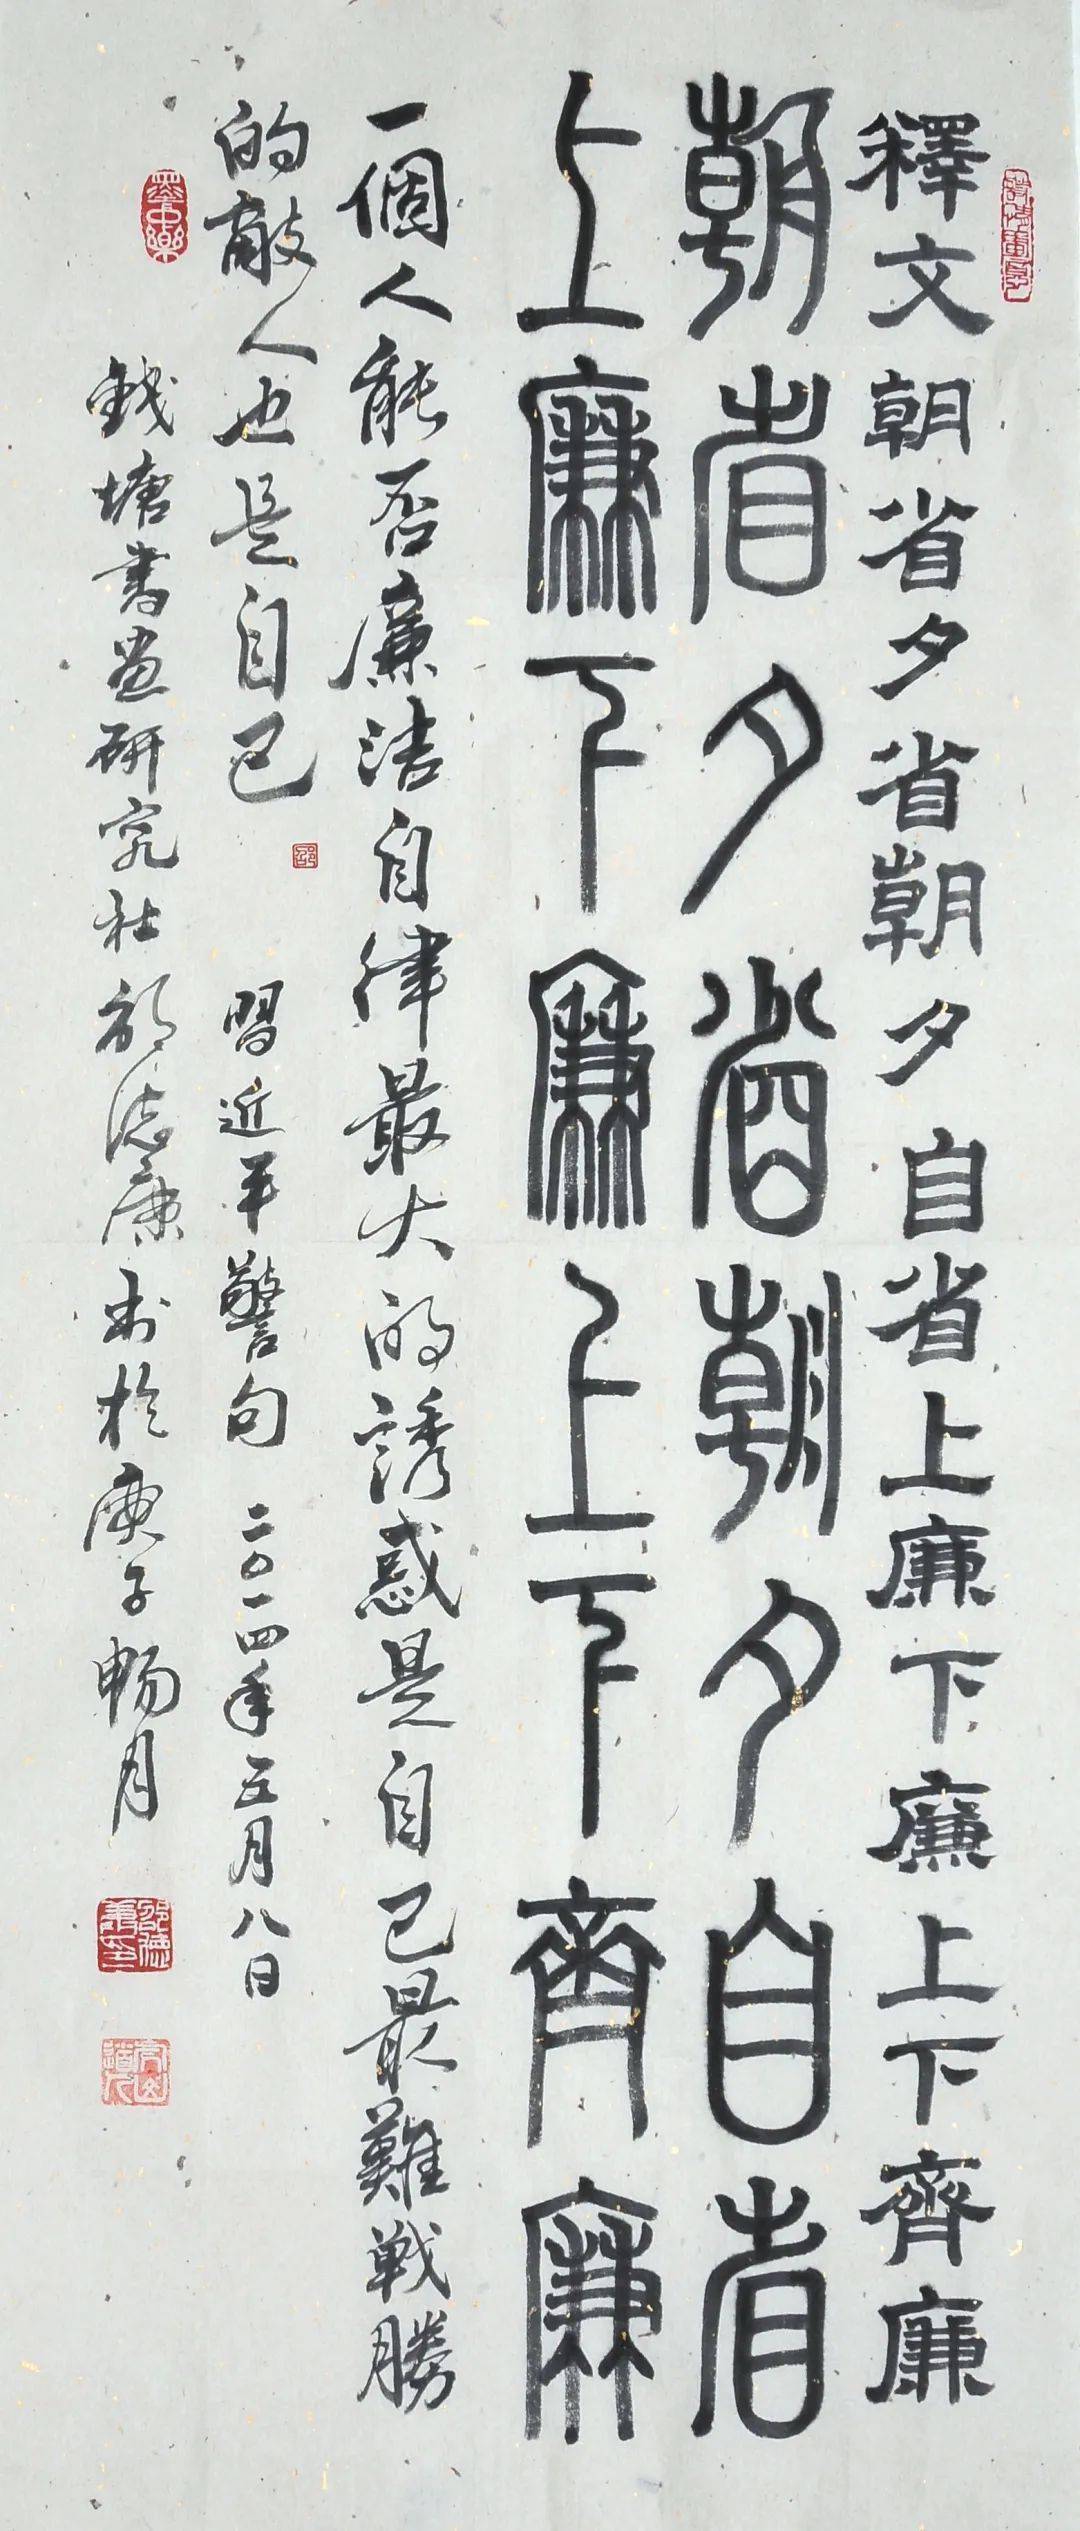 釋文朝省夕省朝夕自省上廉下廉上下齊廉
朝省夕省朝夕自省
上廉下廉上下齊廉
一個人能否廉洁自律最大的誘惑是自己最難戰勝
的敵人也是自己
習近平警句二〇一四年五月八日
錢塘書畫研究社邵德廉書於庚子畅月
墨中樂
邵